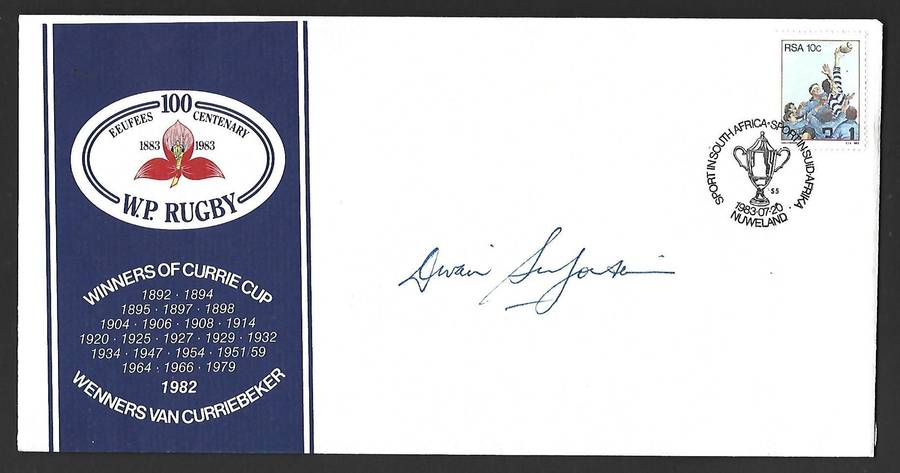 100
EEUFEES CENTENARY
1883 1983
W.P. RUGBY
WINNERS OF CURRIE CUP
1892 · 1894
1895 · 1897 · 1898
1904 · 1906 · 1908 · 1914
1920 · 1925 · 1927 · 1929 · 1932
1934 · 1947 · 1954 · 1951/59
1964 · 1966 · 1979
1982
WENNERS VAN CURRIEBEKER
RSA 10c
SPORT IN SOUTH AFRICA · SPORT IN SUID-AFRIKA ·
S5
1983·07·20
NUWELAND